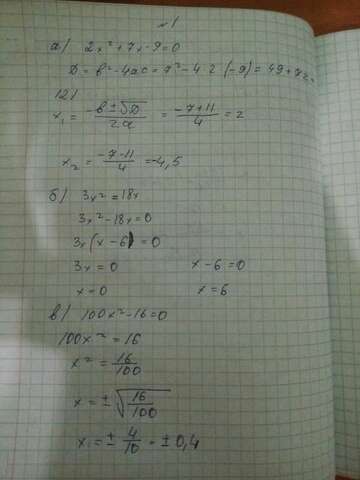 №1
а) 2x²+7x-9=0
D = b²-4ac = 7²-4·2·(-9) = 49+72=
121
x₁ = -b±√D / 2a = -7+11 / 4 = 2
x₂ = -7-11 / 4 = -4,5
б) 3x² = 18x
3x²-18x=0
3x(x-6)=0
3x=0 x-6=0
x=0 x=6
в) 100x²-16=0
100x²=16
x² = 16/100
x = ±√16/100
x₁ = ± 4/10 = ±0,4